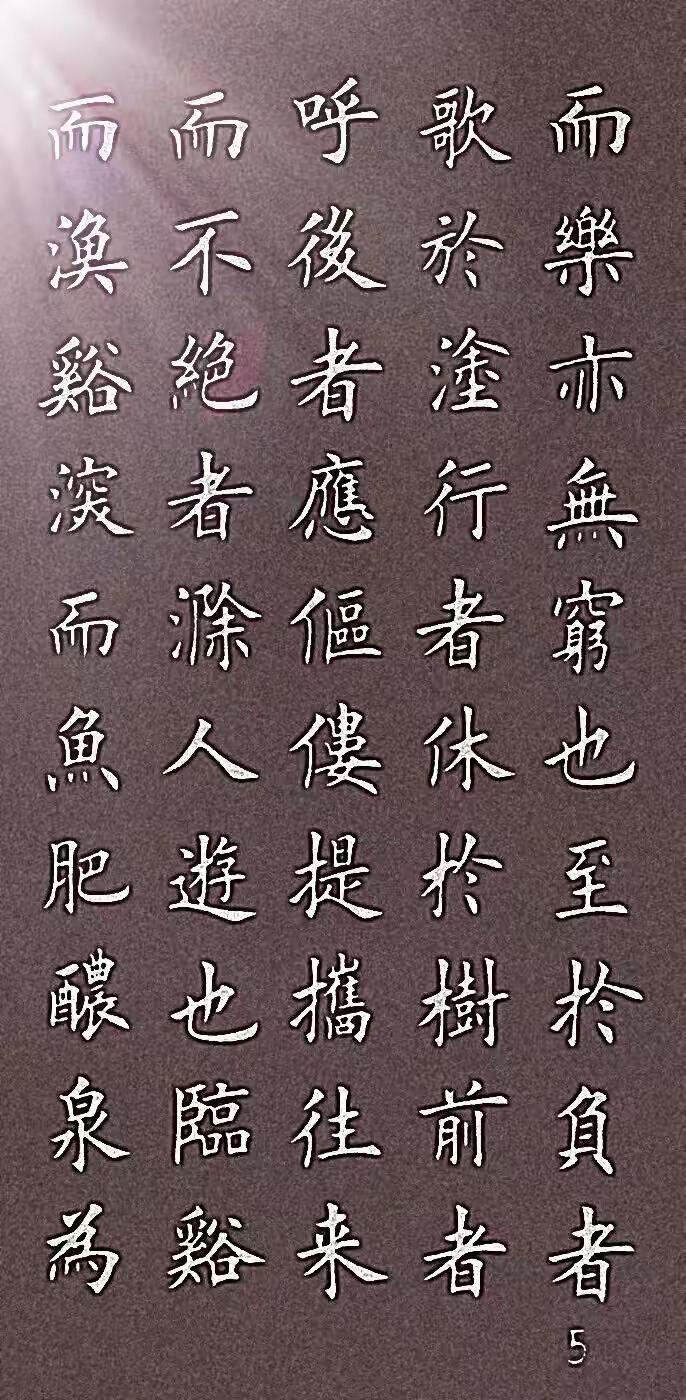 而樂亦無窮也至於負者
歌於塗行者休於樹前者
呼後者應傴僂提攜往来
而不絕者滁人遊也臨谿
而漁谿深而魚肥釀泉為
5